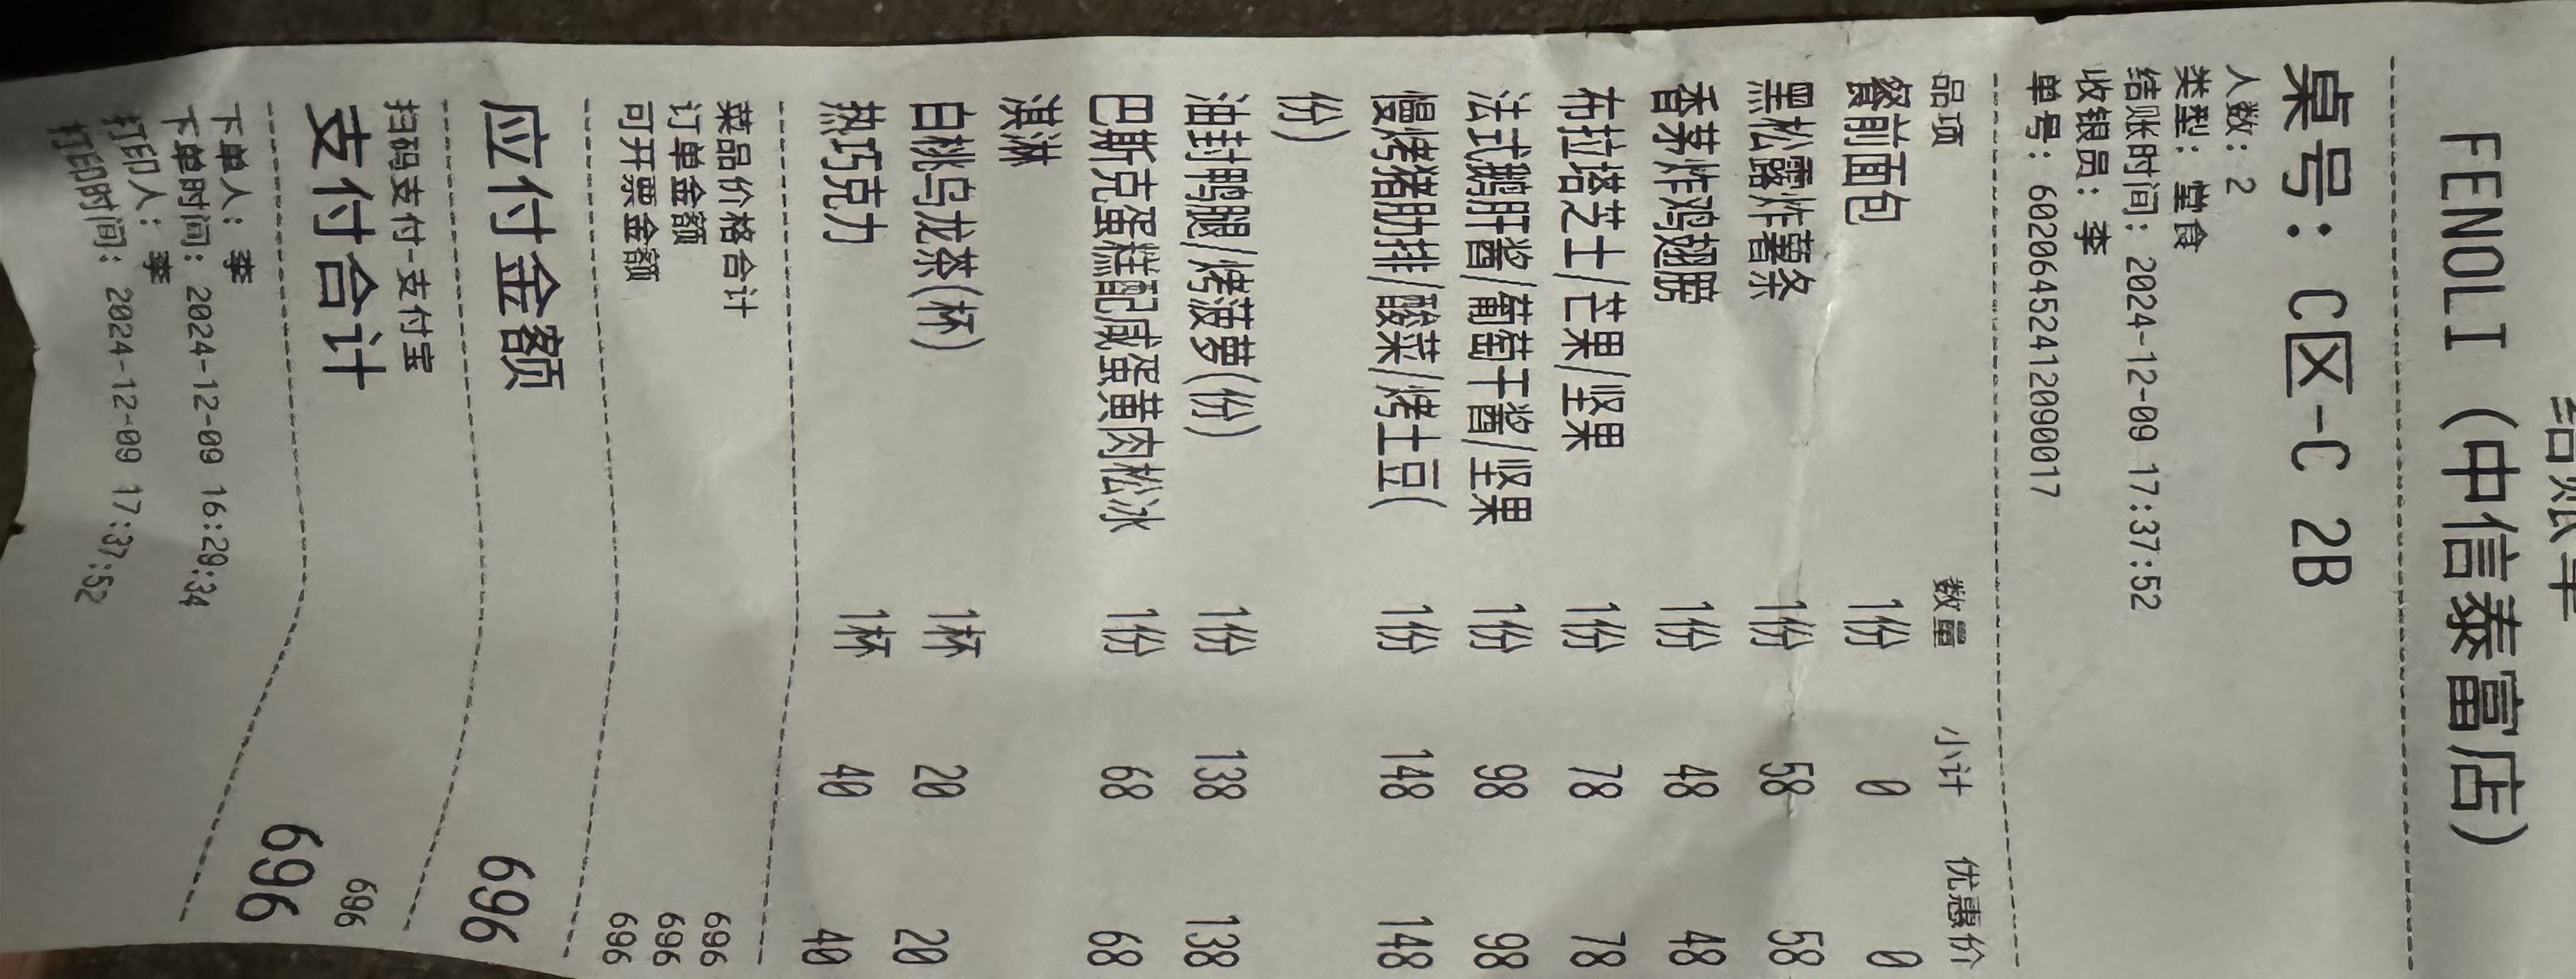 结账单
FENOLI（中信泰富店）
桌号：C区-C 2B
人数：2
类型：堂食
结账时间：2024-12-09 17:37:52
收银员：李
单号：602064524120900​17
品项 数量 小计 优惠价
餐前面包 1份 0 0
黑松露炸薯条 1份 58 58
香茅炸鸡翅膀 1份 48 48
布拉塔芝士/芒果/坚果 1份 78 78
法式鹅肝酱/葡萄干酱/坚果 1份 98 98
慢烤猪肋排/酸菜/烤土豆( 1份 148 148
份)
油封鸭腿/烤菠萝(份) 1份 138 138
巴斯克蛋糕配咸蛋黄肉松冰 1份 68 68
淇淋
白桃乌龙茶(杯) 1杯 20 20
热巧克力 1杯 40 40
菜品价格合计 696
订单金额 696
可开票金额 696
应付金额 696
扫码支付-支付宝 696
支付合计 696
下单人：李
下单时间：2024-12-09 16:29:34
打印人：李
打印时间：2024-12-09 17:37:52